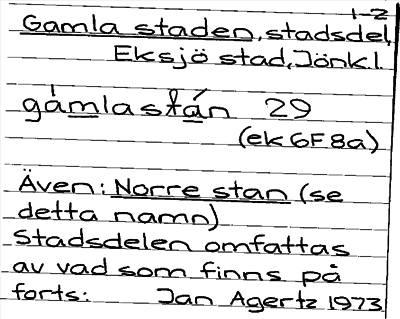 1-2
Gamla staden, stadsdel,
Eksjö stad, Jönk.l.
gámlastán 29
(ek 6F8a)
Även: Norre stan (se
detta namn)
Stadsdelen omfattas
av vad som finns på
forts: Jan Agertz 1973